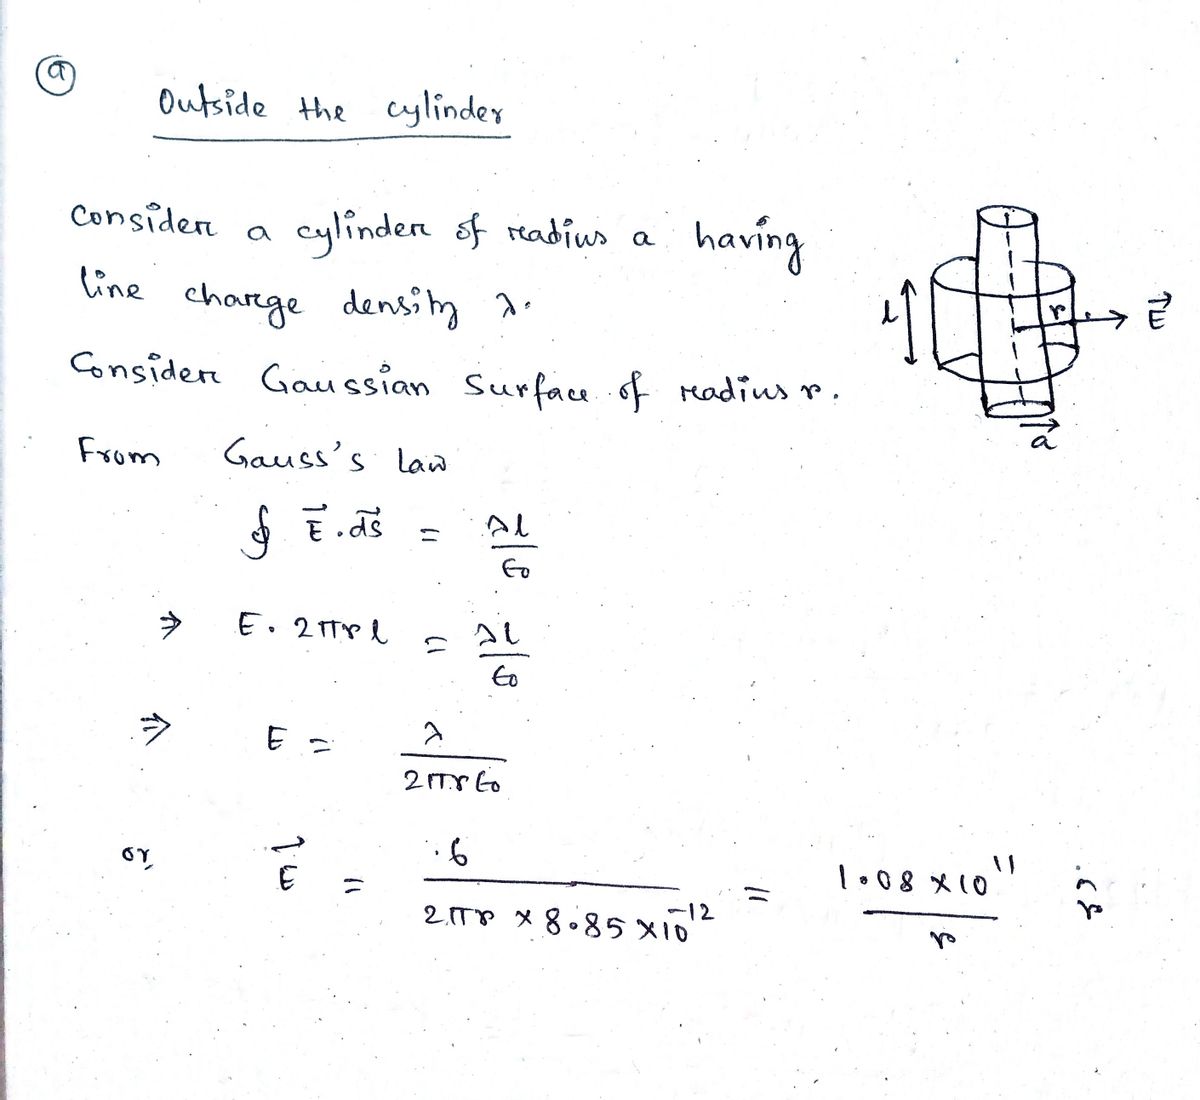 (a)
Outside the cylinder
Consider a cylinder of radius a having
line charge density λ.
Consider Gaussian Surface of radius r.
l r E⃗
a⃗
From Gauss's Law
∮ E⃗ . ds⃗ = λl / ϵ₀
⇒ E. 2πrl = λl / ϵ₀
⇒ E = λ / 2πrϵ₀
or, E⃗ = .6 / 2πr × 8.85 × 10⁻¹² = 1.08 × 10¹¹ / r r̂